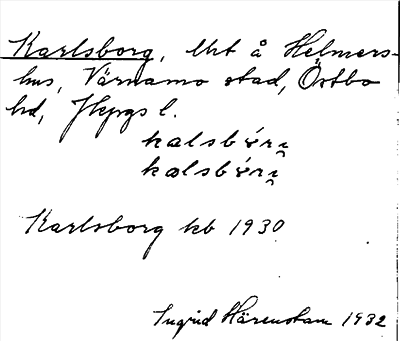 Karlsborg, Urt å Helmers-
hus, Värnamo stad, Östbo
hd, Jkpgs l.
kalsbórı̯
kalsbórı̯
Karlsborg kb 1930
Ingrid Härenstam 1932